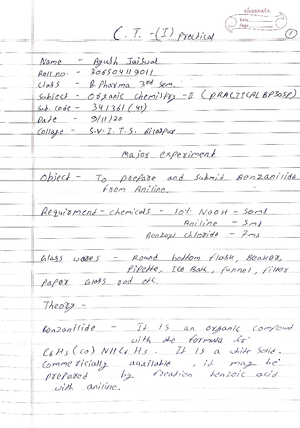 classmate
Date
Page
1
C. T. -(I) Practical
Name - Ayush Jaiswal
Roll no. - 306504119011
Class - B. Pharma 3rd Sem.
Subject - Organic Chemistry -II (PRACTICAL BP305P)
Sub. code - 341361 (41)
Date - 9/11/20
Collage - S.V.I.T.S. Bilaspur
Major experiment
Object - To prepare and submit Benzanilide
from Aniline.
Requirment - chemicals - 10% NaOH - 50ml
Aniline - 5ml
Benzoyl chloride - 7ml
Glass wares - Round bottom flask, Beaker,
Pipette, Ice Bath, funnel, filter
paper Glass rod etc.
Theory -
Benzanilide - It is an organic compound
with the formula is:
C6H5 (CO) NHC6H5. It is a white solid.
Commercially available, it may be
prepared by reaction benzoic acid
with aniline.